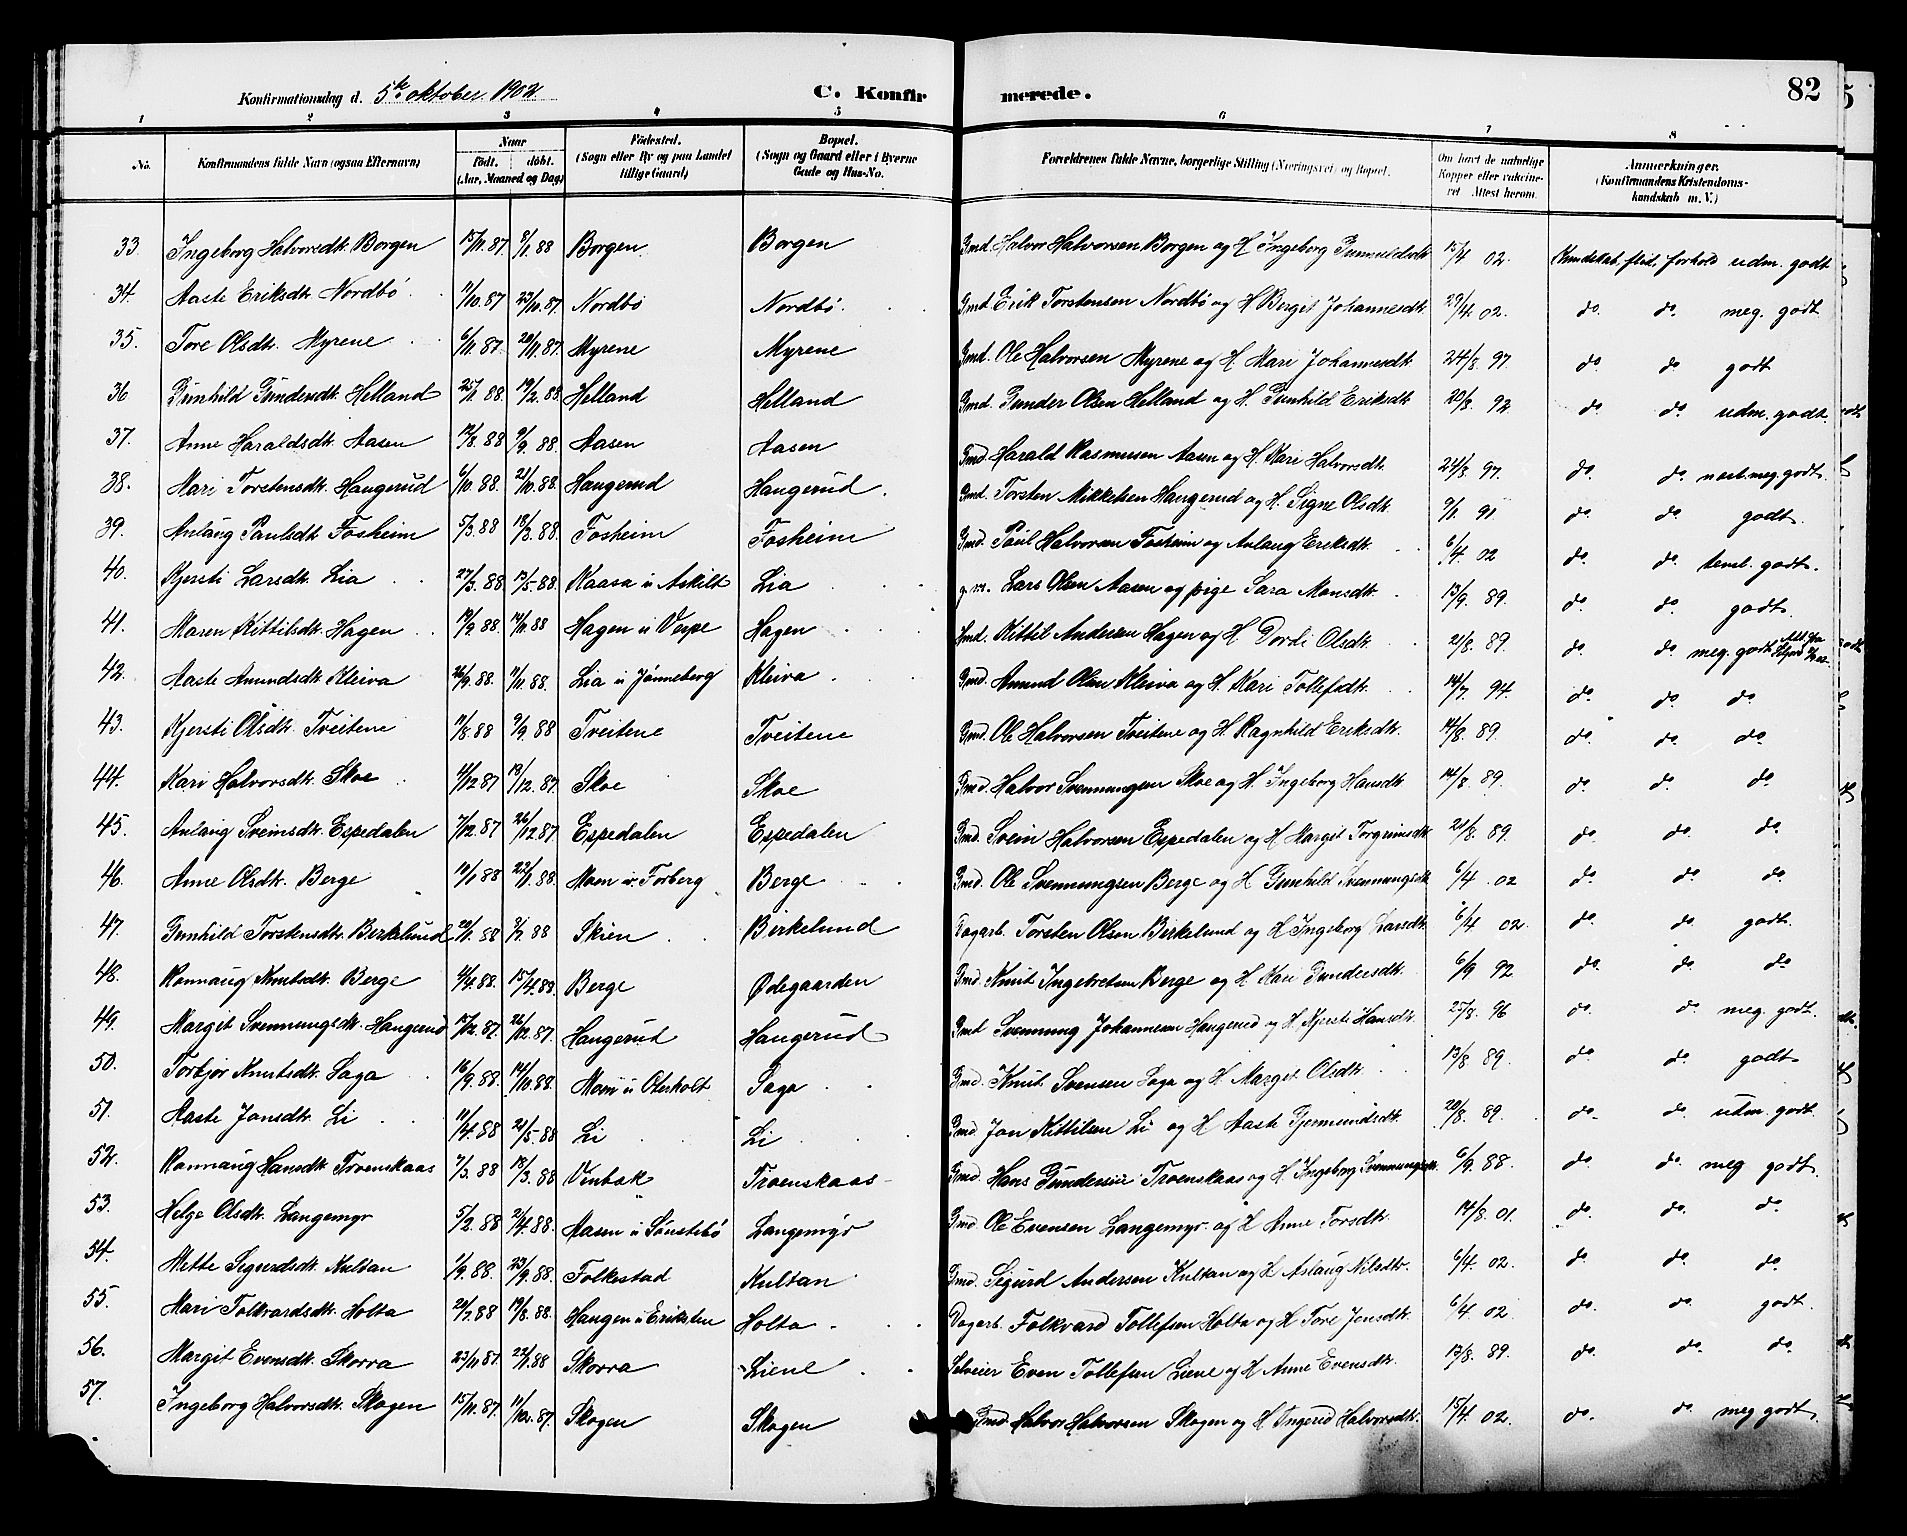 Konfirmationsdag d. 5te oktober 1902. C. Konfirmerede. 82
1 2 3 4 5 6 7 8
No. Konfirmandens fulde Navn (ogsaa Efternavn) Naar født. døbt. (Aar, Maaned og Dag) Fødested. (Sogn eller By og paa Landet tillige Gaard) Bopæl. (Sogn og Gaard eller i Byerne Gade og Hus-No. Forældrenes fulde Navne, borgerlige Stilling (Næringsvei) og Bopæl. Om havt de naturlige Kopper eller vakcineret Attest herom. Anmerkninger. (Konfirmandens Kristendomskundskab m. V.)
33. Ingeborg Halvorsdtr. Borgen 15/11.87 8/1.88 Borgen Borgen Gmd. Halvor Halvorsen Borgen og H. Ingeborg Gunnuldsdtr 15/4 02. Kundskab, flid, forhold udm. godt
34. Aaste Eriksdtr. Nordbö 1/10.87 23/10.87 Nordbö Nordbö. Gmd. Erik Torstensen Nordbö og H. Berget Johannesdtr. 29/4. 02. do. do. meg. godt
35. Tore Olsdtr. Myrene 6/11.87. 20/11.87. Myrene Myrene Gmd. Ole Halvorsen Myrene og H. Mari Johannesdtr 24/8. 97. do do godt
36 Gunhild Gundersdtr. Helland 25/1.88. 19/2.88. Helland Helland Gmd. Gunder Olsen Helland og H. Gunhild Eriksdtr. 20/8. 92 do do udm. godt.
37. Anne Haraldsdtr. Aasen 12/8.88 9/9.88. Aasen Aasen Gmd. Harald Rasmusen Aasen og H. Kari Halvorsdtr. 24/8. 97. do. do. næst meg. godt.
38. Mari Torstensdtr. Haugerud 6/10.88. 21/10.88. Haugerud Haugerud. Gmd. Torsten Mikkelsen Haugerud og H. Signe Olsdtr. 9/1. 91 do do godt.
39. Aslaug Paulsdtr Fosheim 5/3.88 18/3.88. Fosheim Fosheim Gmd. Paul Halvorsen Fosheim og Aslaug Eriksdtr. 6/4 02 do do teml. godt.
40. Kjersti Larsdtr. Lia 27/3.88 13/5.88. Kaasa u. Askilt Lia g.m. Lars Olsen Aasen og pige Sara Monsdtr. 13/9. 89. do do. godt.
41. Maren Kittilsdtr. Hagen 19/9.88. 14/11.88 Hagen u Verpe Hagen Hmd. Kittil Andersen Hagen og H. Dordi Olsdtr. 21/8. 89. do. do. meg. godt
42. Aaste Amundsdtr. Kleiva 26/9.88. 11/11.88. Lia u Jönneberg Kleiva. Gmd. Amund Olsen Kleiva og H. Kari Tollefsdtr. 14/7 94. do do. do
43. Kjersti Olsdtr. Tveitene 11/8.88 9/9.88 Tveitene Tveitene Gmd. Ole Halvorsen Tveitene og H. Ragnhild Eriksdtr. 14/8. 89. do. do. do
44. Kari Halvorsdtr. Skoe 4/12 87 18/12.87. Skoe Skoe Gmd. Halvor Svennungsen Skoe og H. Ingeborg Hansdtr. 14/8. 89. do. do do
45. Aslaug Sveinsdtr. Espedalen 7/12.87 26/12.87 Espedalen Espedalen Gmd. Svein Halvorsen Espedalen og H. Margit Torgrimsdtr. 21/8. 89. do do. do.
46. Anne Olsdtr. Berge 10/1.88 22/1.88. Moen u. Forberg Berge Gmd. Ole Svennungsen Berge og H. Gunhild Svennungsdtr 6/4. 02 do do. do.
47. Gunhild Torstensdtr. Birkelund 22/1.88 Skien Birkelund Dagarb. Torsten Olsen Birkelund og H Ingeborg Larsdtr. 6/4 02. do. do godt.
48. Rannaug Knutsdtr. Berge 4/4.88. 15/4.88. Berge Ødegaarden Gmd. Knut Ingebretsen Berge og H. Kari Gundersdtr. 6/9 92 do. do do
49. Margit Svennungsdtr. Haugerud 15/12.87. 26/12.87. Haugerud Haugerud Gmd Svennung Johannesen Haugerud og H. Kjersti Hansdtr. 25/8. 96 do. do. meg. godt.
50. Torbjör Knutsdtr. Saga 16/9.88. 14/10.88. Moen u Oterholt Saga Gmd. Knut Svensen Saga og H. Marget Olsdtr. 13/8 89. do. do. godt
51. Aaste Jonsdtr. Li 11/4.88 21/5.88 Li Li Gmd. Jon Kittilsen Li og H Aaste Gjermundsdtr. 20/8. 89. do. do. udm. godt.
52. Rannaug Hansdtr. Troenskaas 7/3.88 18/3.88 Vinbak Troenskaas Gmd. Hans Gundersen Troenskaas og H. Ingeborg Svennungsdtr. 6/9. 88. do. do. meg godt.
53. Helge Olsdtr. Langemyr 5/2.88 2/4.88. Aasen u Sönstebö Langemyr Gmd. Ole Evensen Langemyr og H Anne Torsdtr. 14/8. 01. do. do. do
54. Mette Sigurdsdtr. Kultan 1/9.88. 23/9.88. Folkestad Kultan Gmd. Sigurd Andersen Kultan og H Aslaug Nilsdtr. 6/4. 02. do do. do
55. Mari Folkvardsdtr. Holta 29/7.88 19/8.88. Haugen u Eriksten Holta Dagarb. Folkvard Tollefsen Holta og H Tore Jensdtr. 6/4 02. do. do. godt.
56. Margit Evensdtr. Skorra 23/11 87. 22/1.88 Skorra Liene Selveier Even Tollefsen Liene og H Anne Evensdtr. 13/8. 89. do. do. do
57. Ingeborg Halvorsdtr. Skogen 15/11.87. Skogen Skogen Gmd Halvor Halvorsen Skogen og H. Ingerid Halvorsdtr. 15/4. 02. do. do. meg godt.